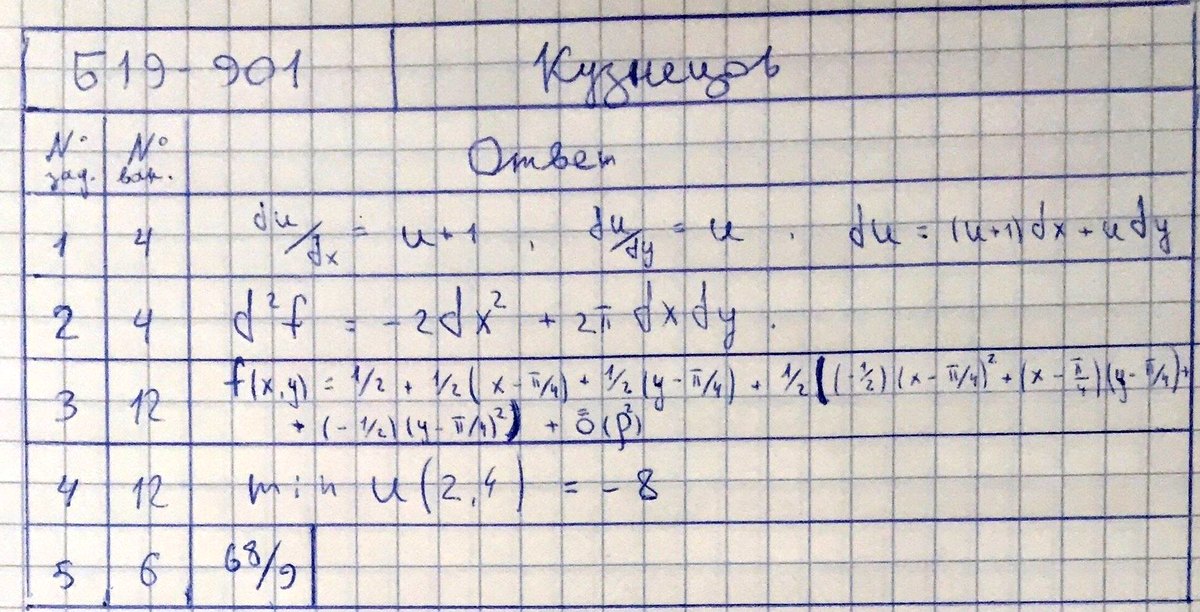 Б19-901 Кузнецов
№ зад. № вар. Ответ
1 4 du/dx = u+1 , du/dy = u . du = (u+1)dx + u dy
2 4 d²f = -2dx² + 2π dx dy .
3 12 f(x,y) = 1/2 + 1/2(x-π/4) + 1/2(y-π/4) + 1/2((-1/2)(x-π/4)² + (x-π/4)(y-π/4)+
+ (-1/2)(y-π/4)²) + ō(ρ²)
4 12 min u(2,4) = -8
5 6 68/9